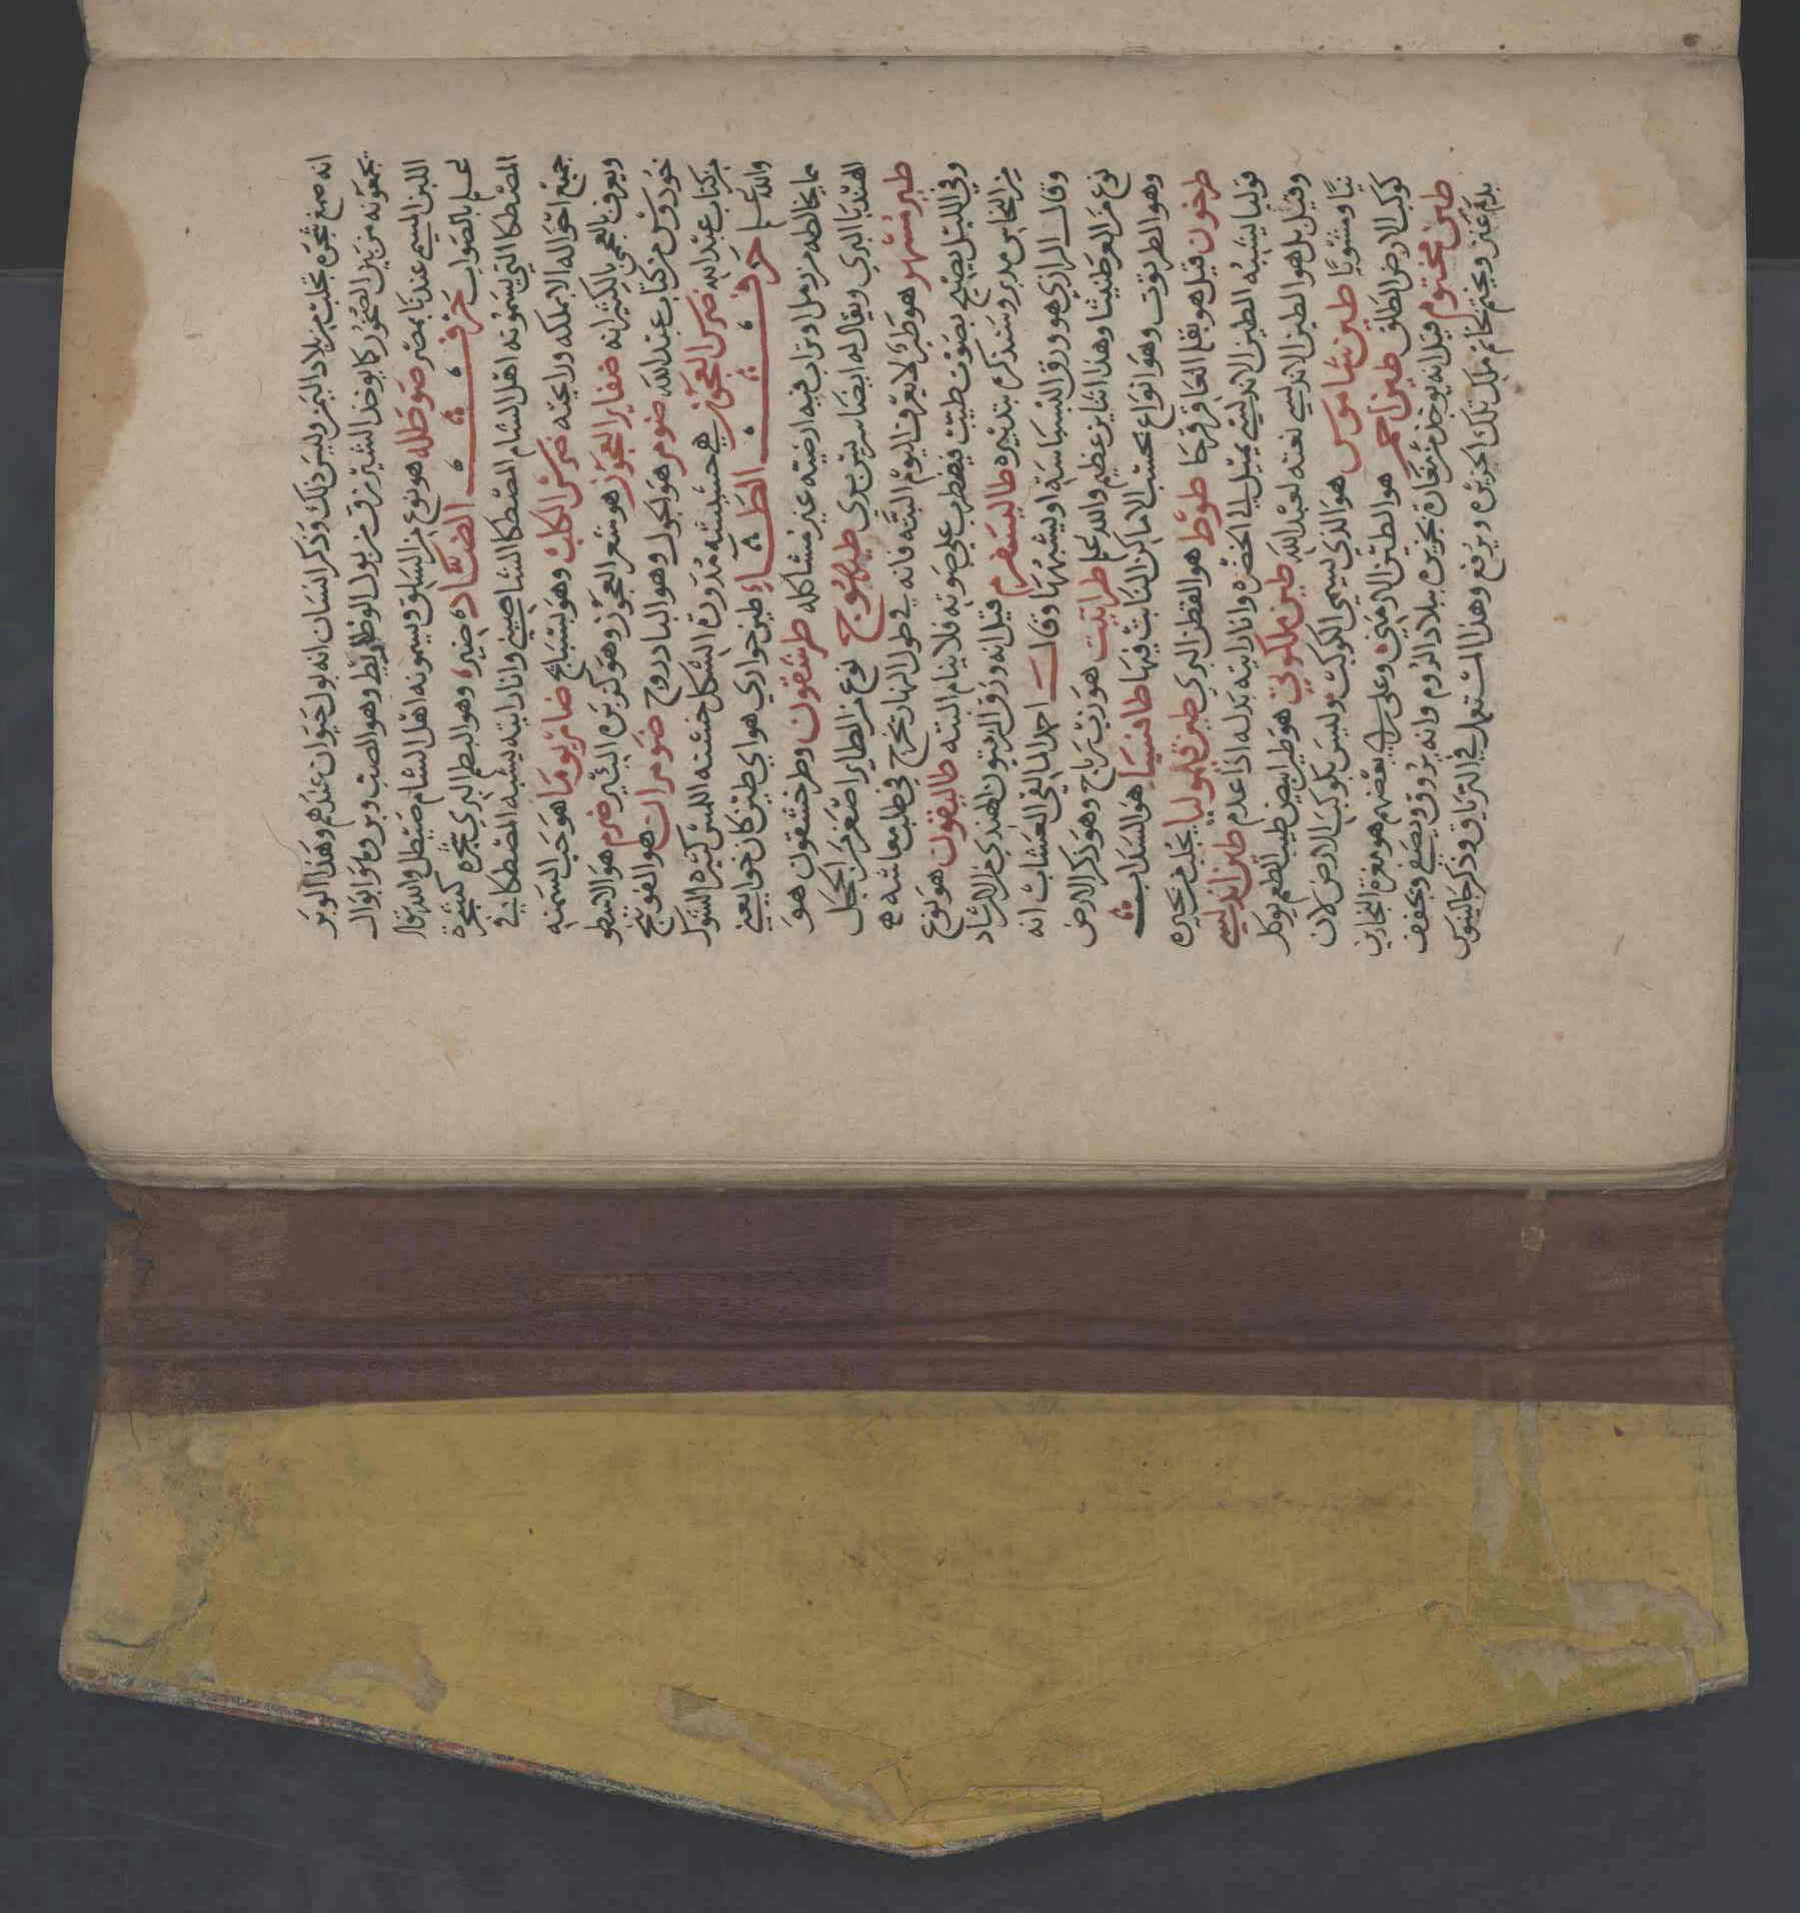 انه صمغ شجرة تجلب من بلاد اليمن وليس ذلك وذكر انسان انه بول حيوان عندهم وهذا الوبر
يجمعونه من بين الصخور كما يوخذ الشيزرق من بول الوطاويط وهو الصن وبر وابوال
اللبن المسمى عندنا بمصر صوطله هو نوع من السلق ويسمونه اهل الشام صيطل والله تعالى
اعلم بالصواب حرف الضاد ضرو وهو البطم البري شجره كشجرة
المصطكا التي يسمونه اهل الشام المصطكا الشامي وانا رايته يشبه المصطكا في
جميع احواله الا بملكه ورايحته ضرس الكلب وهو بسبايج ضاريوما هو حب السمنه
ويعرف بالعجمي بالكثيرانه ضفاير العجوز هو شعر العجوز وهو كزبرة البير ضرم هو الاسطو
خودوس من كتاب عبد الله ضومر هو الحوك وهو البادروج ضومران هو الفوتنج
من كتاب عبد الله ضرس العجوز هي حشيشه مدورة الشكل خشنه اللمس كثيره الشوك
والله اعلم حرف الطاء طين حواري هو اي طين كان خوا يعني
مما يخالطه من رمل او تراب فيه ارضيته غير مشاكله طرشقون وطرخشقون هو
الهندبا البري ويقال له ايضا سريس بري طيهوج نوع من الطاير اصغر من الحجل
طير مشهر هو طير لا يعرف اليوم البته فانه في طول النهار يخرج في طلب معاشه
وفي الليل يصيح بصوت طيب فيضطرب على صوته فلا ينام البته طاليقون هو نوع
من النحاس مدبر وسنذكر بتدبيره طاليسفرم قيل انه ورق الزيتون الهندي من الارشاد
وقال الرازي هو ورق البسباسة او يشبهها وقال احمد الغافقي العشاب انه
نوع من العرطنيثا وهذا تباين عظيم والله اعلم طراثيث هو زب رباح وهو ذكر الارض
وهو الطرثوث وهو انواع بحسب الاماكن النابت فيها طافسيا هو السذاب
طرخون قيل هو بقل العاقرقرحا طوط هو القطن البري طين قيموليا يجلب من جزيره
قوليا يشبه الطين الاندلسي يميل الى الخضره وانا رايته بدله اذا عدم طين اندلسي
وقيل بل هو الطين الاندلسي نعته لعبد الله طين ملكوتي هو طين ابيض طيب الطعم يوكل
نيا ومشويا طين شاموس هو الذي يسمى الكوكب وليس بكوكب الارض لان
كوكب الارض الطلق طين احمر هو الطين الارمني وعلى راي بعضهم هو مغرة النجارين
طين مختوم قيل انه يوجد من مغارة بجزيره ببلاد الروم وانه يروق ويصفى ويجفف
بدم عنز ويختم بخاتم ملك تلك الجزيره ويرفع وهذا المستعمل في الترياق وذكر جالينوس